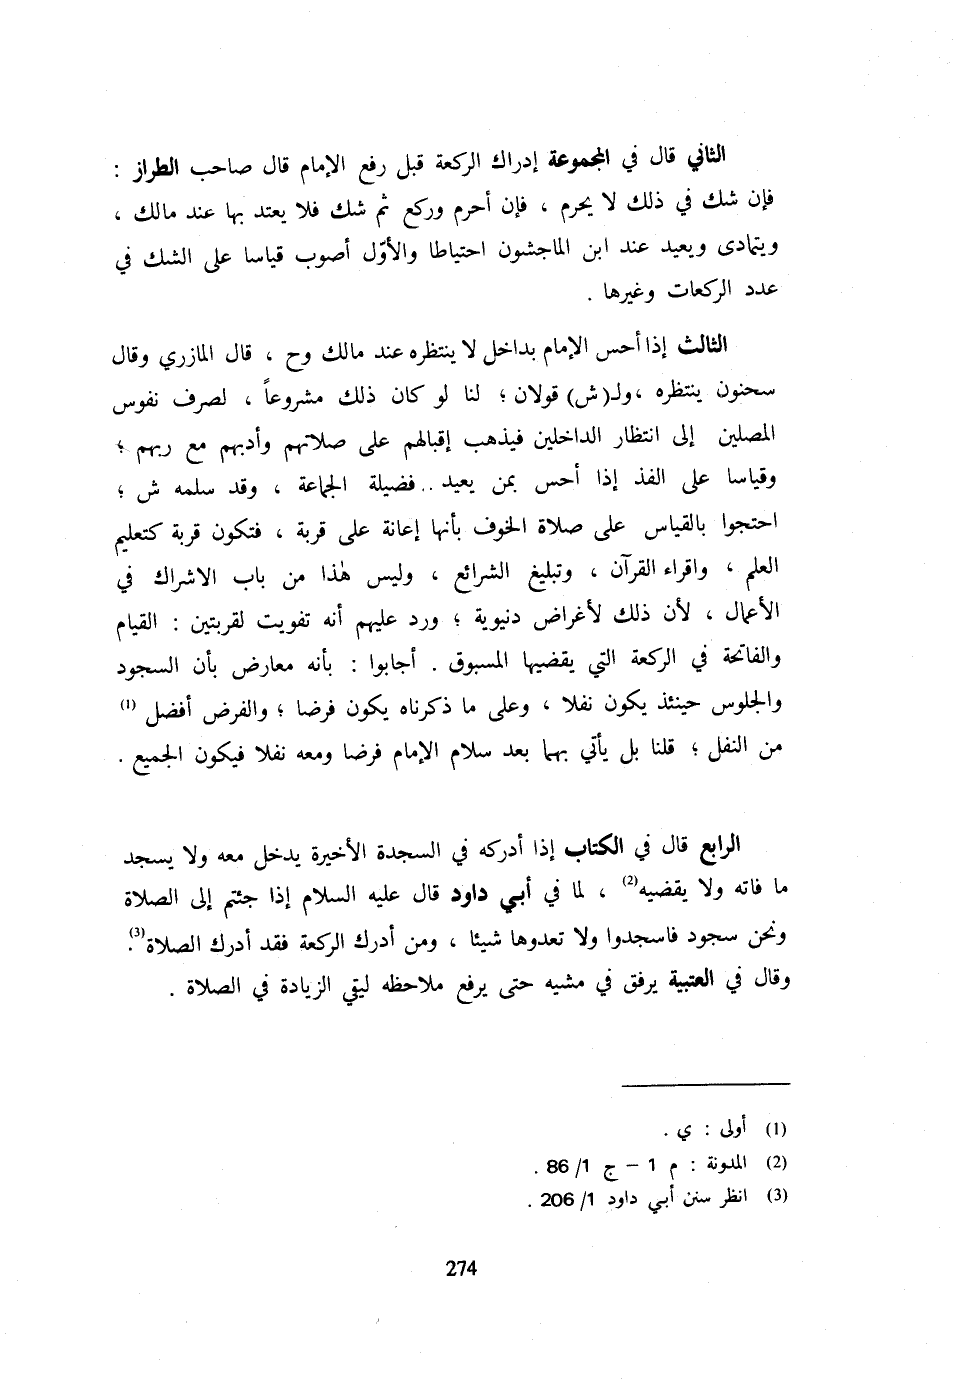 الثاني قال في المجموعة إدراك الركعة قبل رفع الإمام قال صاحب الطراز :
فإن شك في ذلك لا يحرم ، فإن أحرم وركع ثم شك فلا يعتد بها عند مالك ،
ويتمادى ويعيد عند ابن الماجشون احتياطا والأوّل أصوب قياسا على الشك في
عدد الركعات وغيرها .
الثالث إذا أحس الإمام بداخل لا ينتظره عند مالك وح ، قال المازري وقال
سحنون ينتظره ، ولـ(ش) قولان ؛ لنا لو كان ذلك مشروعاً ، لصرف نفوس
المصلين إلى انتظار الداخلين فيذهب إقبالهم على صلاتهم وأدبهم مع ربهم ؛
وقياسا على الفذ إذا أحس بمن يعيد .. فضيلة الجماعة ، وقد سلمه ش ؛
احتجوا بالقياس على صلاة الخوف بأنها إعانة على قربة ، فتكون قربة كتعليم
العلم ، واقراء القرآن ، وتبليغ الشرائع ، وليس هٰذا من باب الاشراك في
الأعمال ، لأن ذلك لأغراض دنيوية ؛ ورد عليهم أنه تفويت لقربتين : القيام
والفاتحة في الركعة التي يقضيها المسبوق . أجابوا : بأنه معارض بأن السجود
والجلوس حينئذ يكون نفلا ، وعلى ما ذكرناه يكون فرضا ؛ والفرض أفضل (1)
من النفل ؛ قلنا بل يأتي بهما بعد سلام الإمام فرضا ومعه نفلا فيكون الجميع .
الرابع قال في الكتاب إذا أدركه في السجدة الأخيرة يدخل معه ولا يسجد
ما فاته ولا يقضيه(2) ، لما في أبي داود قال عليه السلام إذا جئتم إلى الصلاة
ونحن سجود فاسجدوا ولا تعدوها شيئا ، ومن أدرك الركعة فقد أدرك الصلاة(3).
وقال في العتبية يرفق في مشيه حتى يرفع ملاحظه ليتي الزيادة في الصلاة .
(1) أولى : ي .
(2) المدونة : م 1 – ج 1/ 86 .
(3) انظر سنن أبي داود 1/ 206 .
274